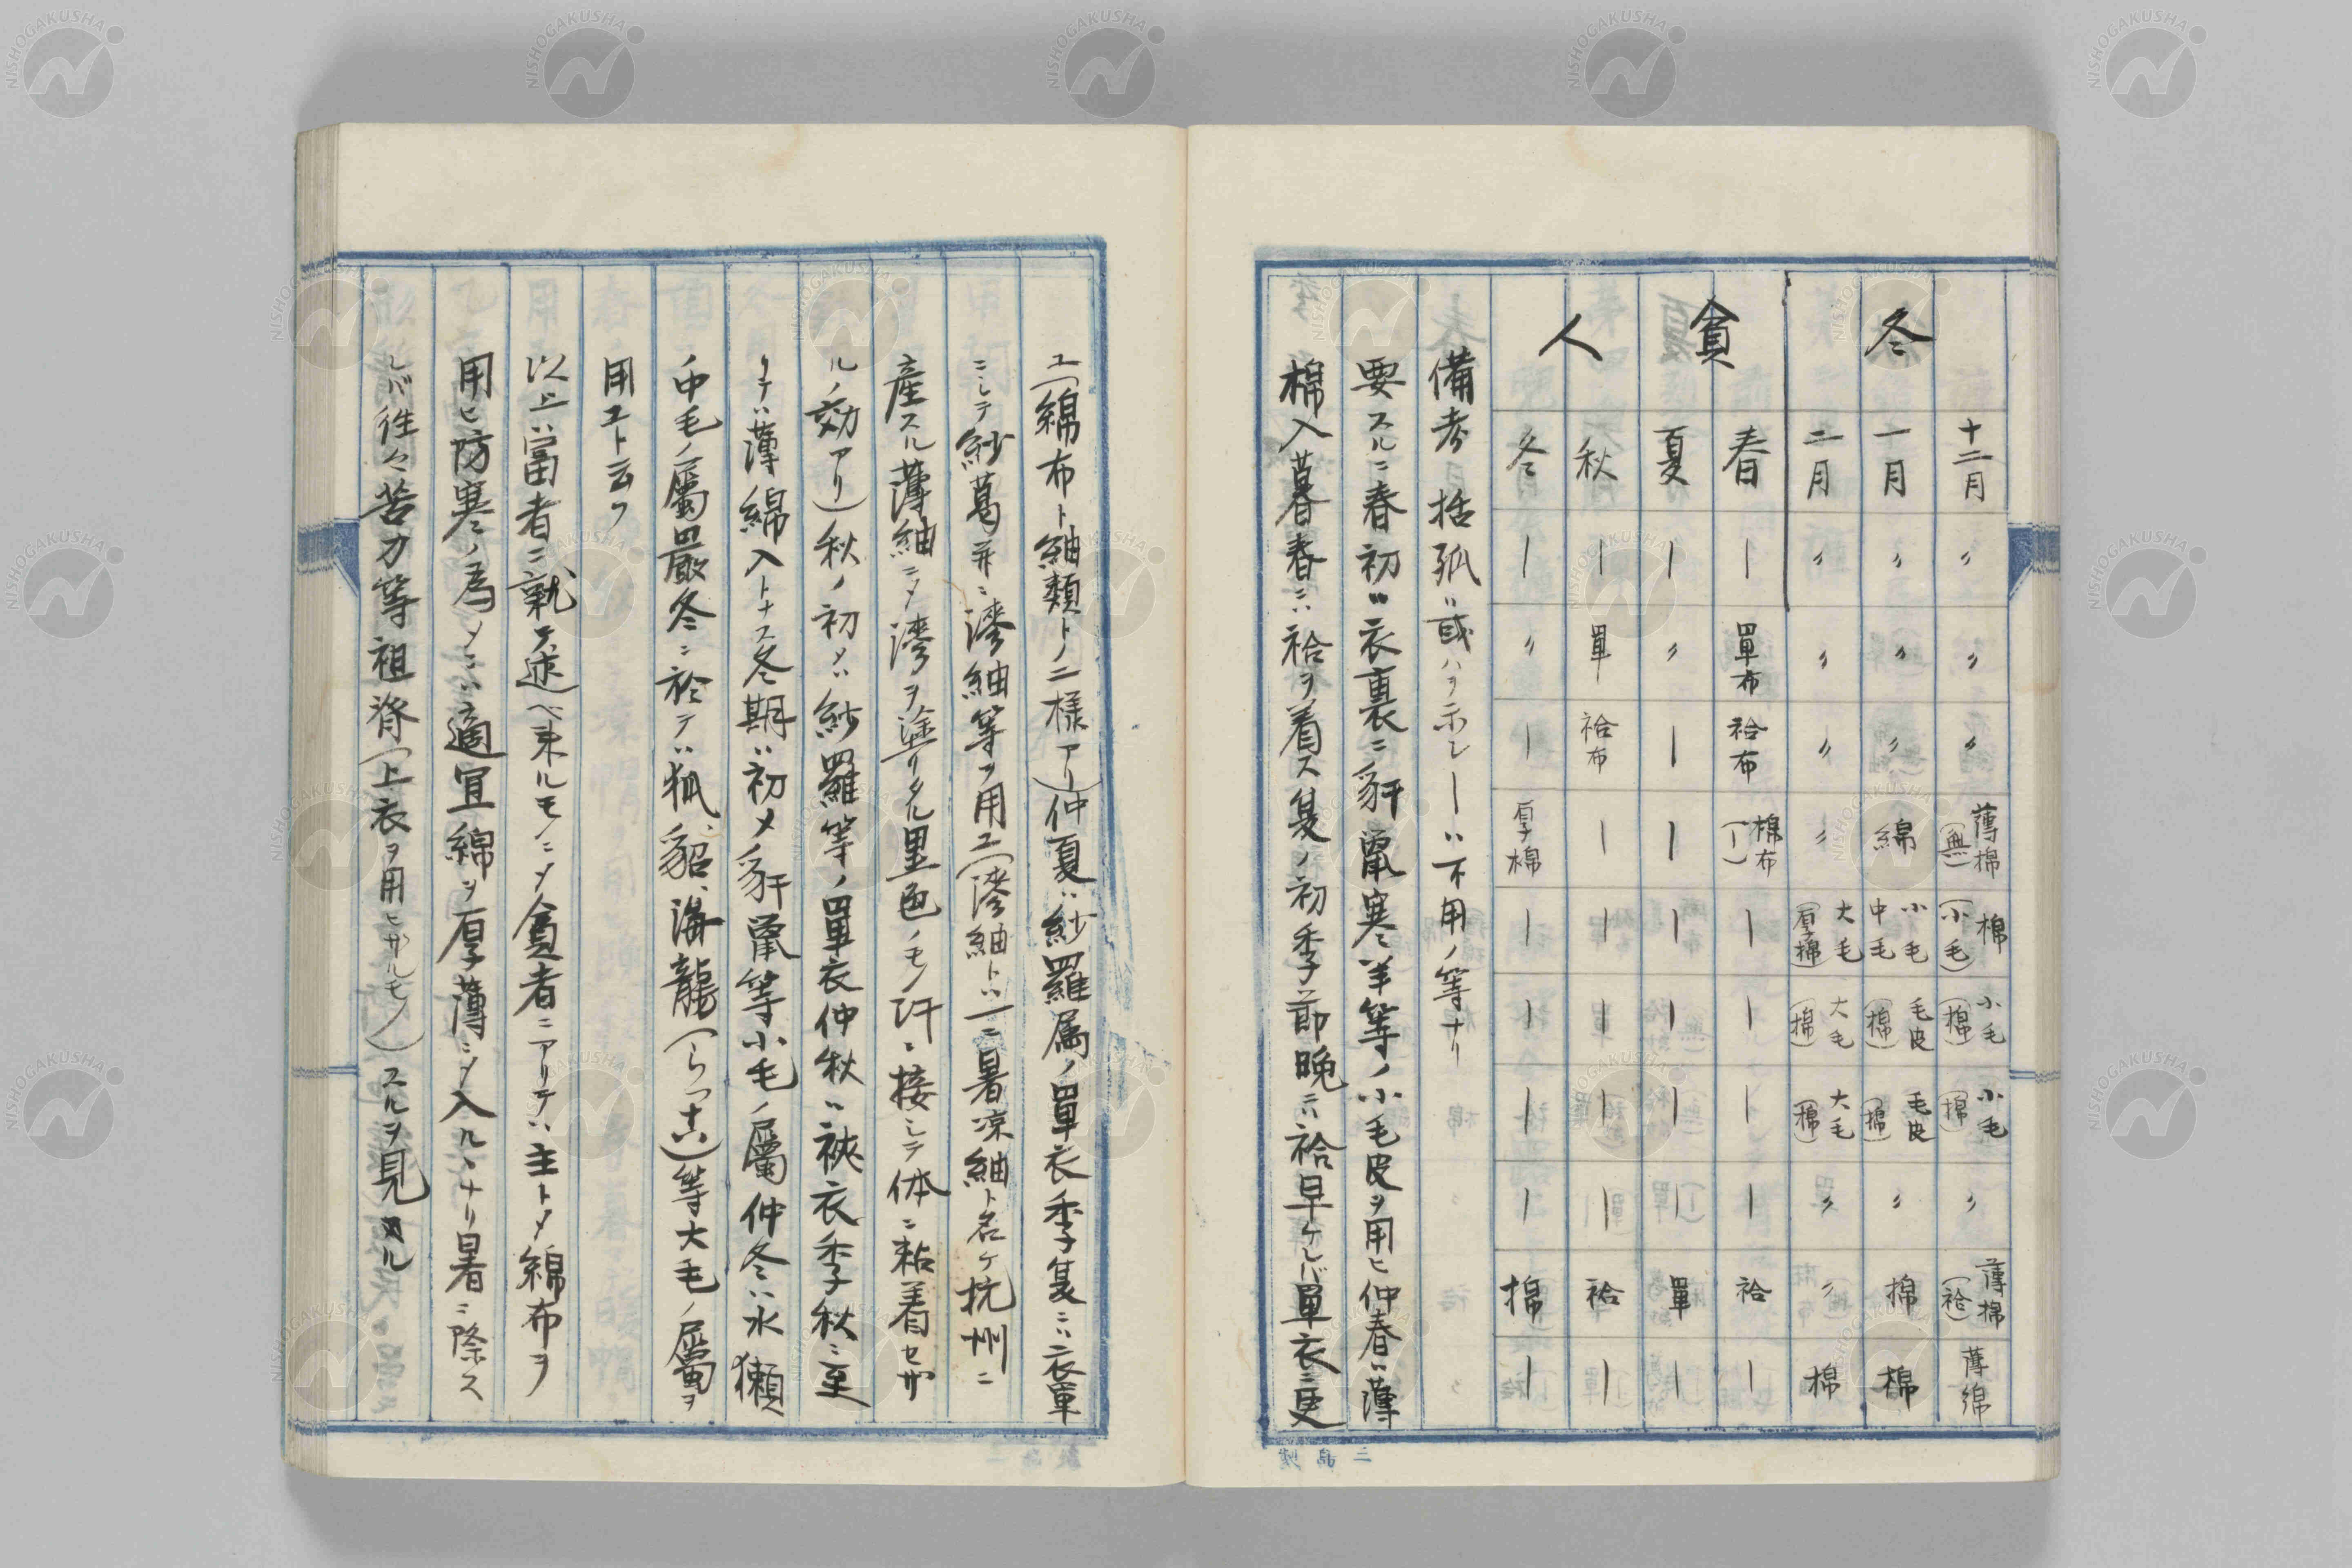 冬
十二月 〃 〃 〃 薄棉(無) 棉(小毛) 小毛(棉) 小毛(棉) 〃 薄棉(袷) 薄綿
一月 〃 〃 〃 綿 小毛中毛 毛皮(棉) 毛皮(棉) 〃 棉 棉
二月 〃 〃 〃 〃 大毛(厚棉) 大毛(棉) 大毛(棉) 〃 〃 棉
貧人
春 ー 單布 袷布 棉布(ー) ー ー ー ー 袷 ー
夏 ー 〃 ー ー ー ー ー ー 單 ー
秋 ー 單 袷布 ー ー ー ー ー 袷 ー
冬 ー 〃 ー 厚棉 ー ー ー ー 棉 ー
備考 括弧ハ或ハヲ示シーハ不用ノ等ナリ
要スルニ春初ハ衣裏ニ豻鼠寒羊等ノ小毛皮ヲ用ヒ仲春ハ薄
棉入暮春ニハ袷ヲ着ス夏ノ初季節晩ニハ袷早ケレバ單衣ニ更
ユ(綿布ト紬類トノ二様アリ)仲夏ハ紗羅属ノ單衣季夏ニハ衣單
ニシテ紗葛并ニ濘紬等ヲ用ユ(濘紬トハ一ニ暑凉紬ト名ケ杭州ニ
産スル薄紬ニメ濘ヲ塗リタル黒色ノモノ汗ニ接シテ体ニ粘着セザ
ルノ効アリ)秋ノ初メハ紗羅等ノ單衣仲秋ハ裌衣季秋ニ至
リテハ薄綿入トナス冬期ハ初メ豻鼠等小毛ノ屬仲冬ハ水獺
ノ中毛ノ屬嚴冬ニ於テハ狐、貂、海龍(らっこ)等大毛ノ屬ヲ
用ユト云フ
以上ハ富者ニ就テ述ベ来ルモノニメ貧者ニアリテハ主トメ綿布ヲ
用ヒ防寒ノ為メニハ適宜綿ヲ厚薄ニメ入ルヽナリ暑ニ際ス
レバ往々苦力等袒膀(上衣ヲ用ヒザルモノ)スルヲ見ル